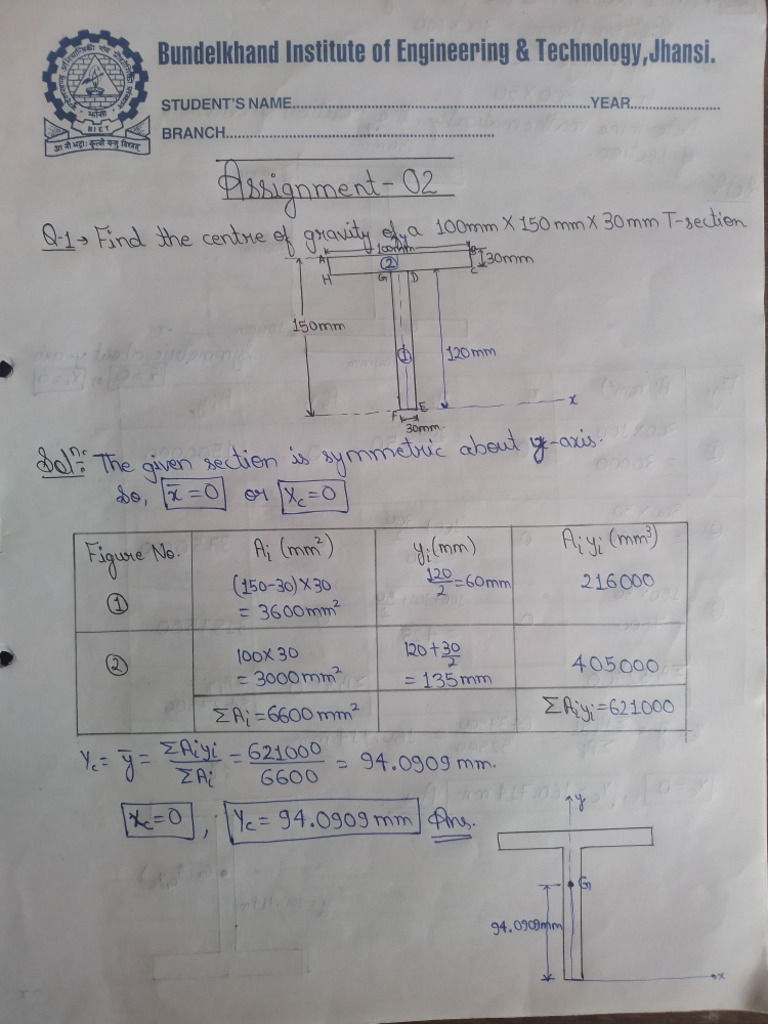 Bundelkhand Institute of Engineering & Technology,Jhansi.
STUDENT'S NAME..........YEAR..........
BRANCH..........
B I E T
Assignment-02
Q.1→ Find the centre of gravity of a 100mm X 150 mm X 30mm T-section
y
100mm
A
B
②
30mm
H
G
D
C
150mm
①
120mm
F
E
x
30mm.
Solⁿ:- The given section is symmetric about y-axis.
So, x̄=0 or Xc=0
Figure No. Ai (mm²) yi(mm) Aiyi (mm³)
① (150-30)X30 120/2=60mm 216000
= 3600mm²
② 100X30 120+30/2 405000
= 3000mm² = 135mm
ΣAi=6600mm² ΣAiyi=621000
Yc= ȳ= ΣAiyi/ΣAi = 621000/6600 = 94.0909 mm.
xc=0 , Yc= 94.0909mm Ans.
y
G
94.0909mm
x